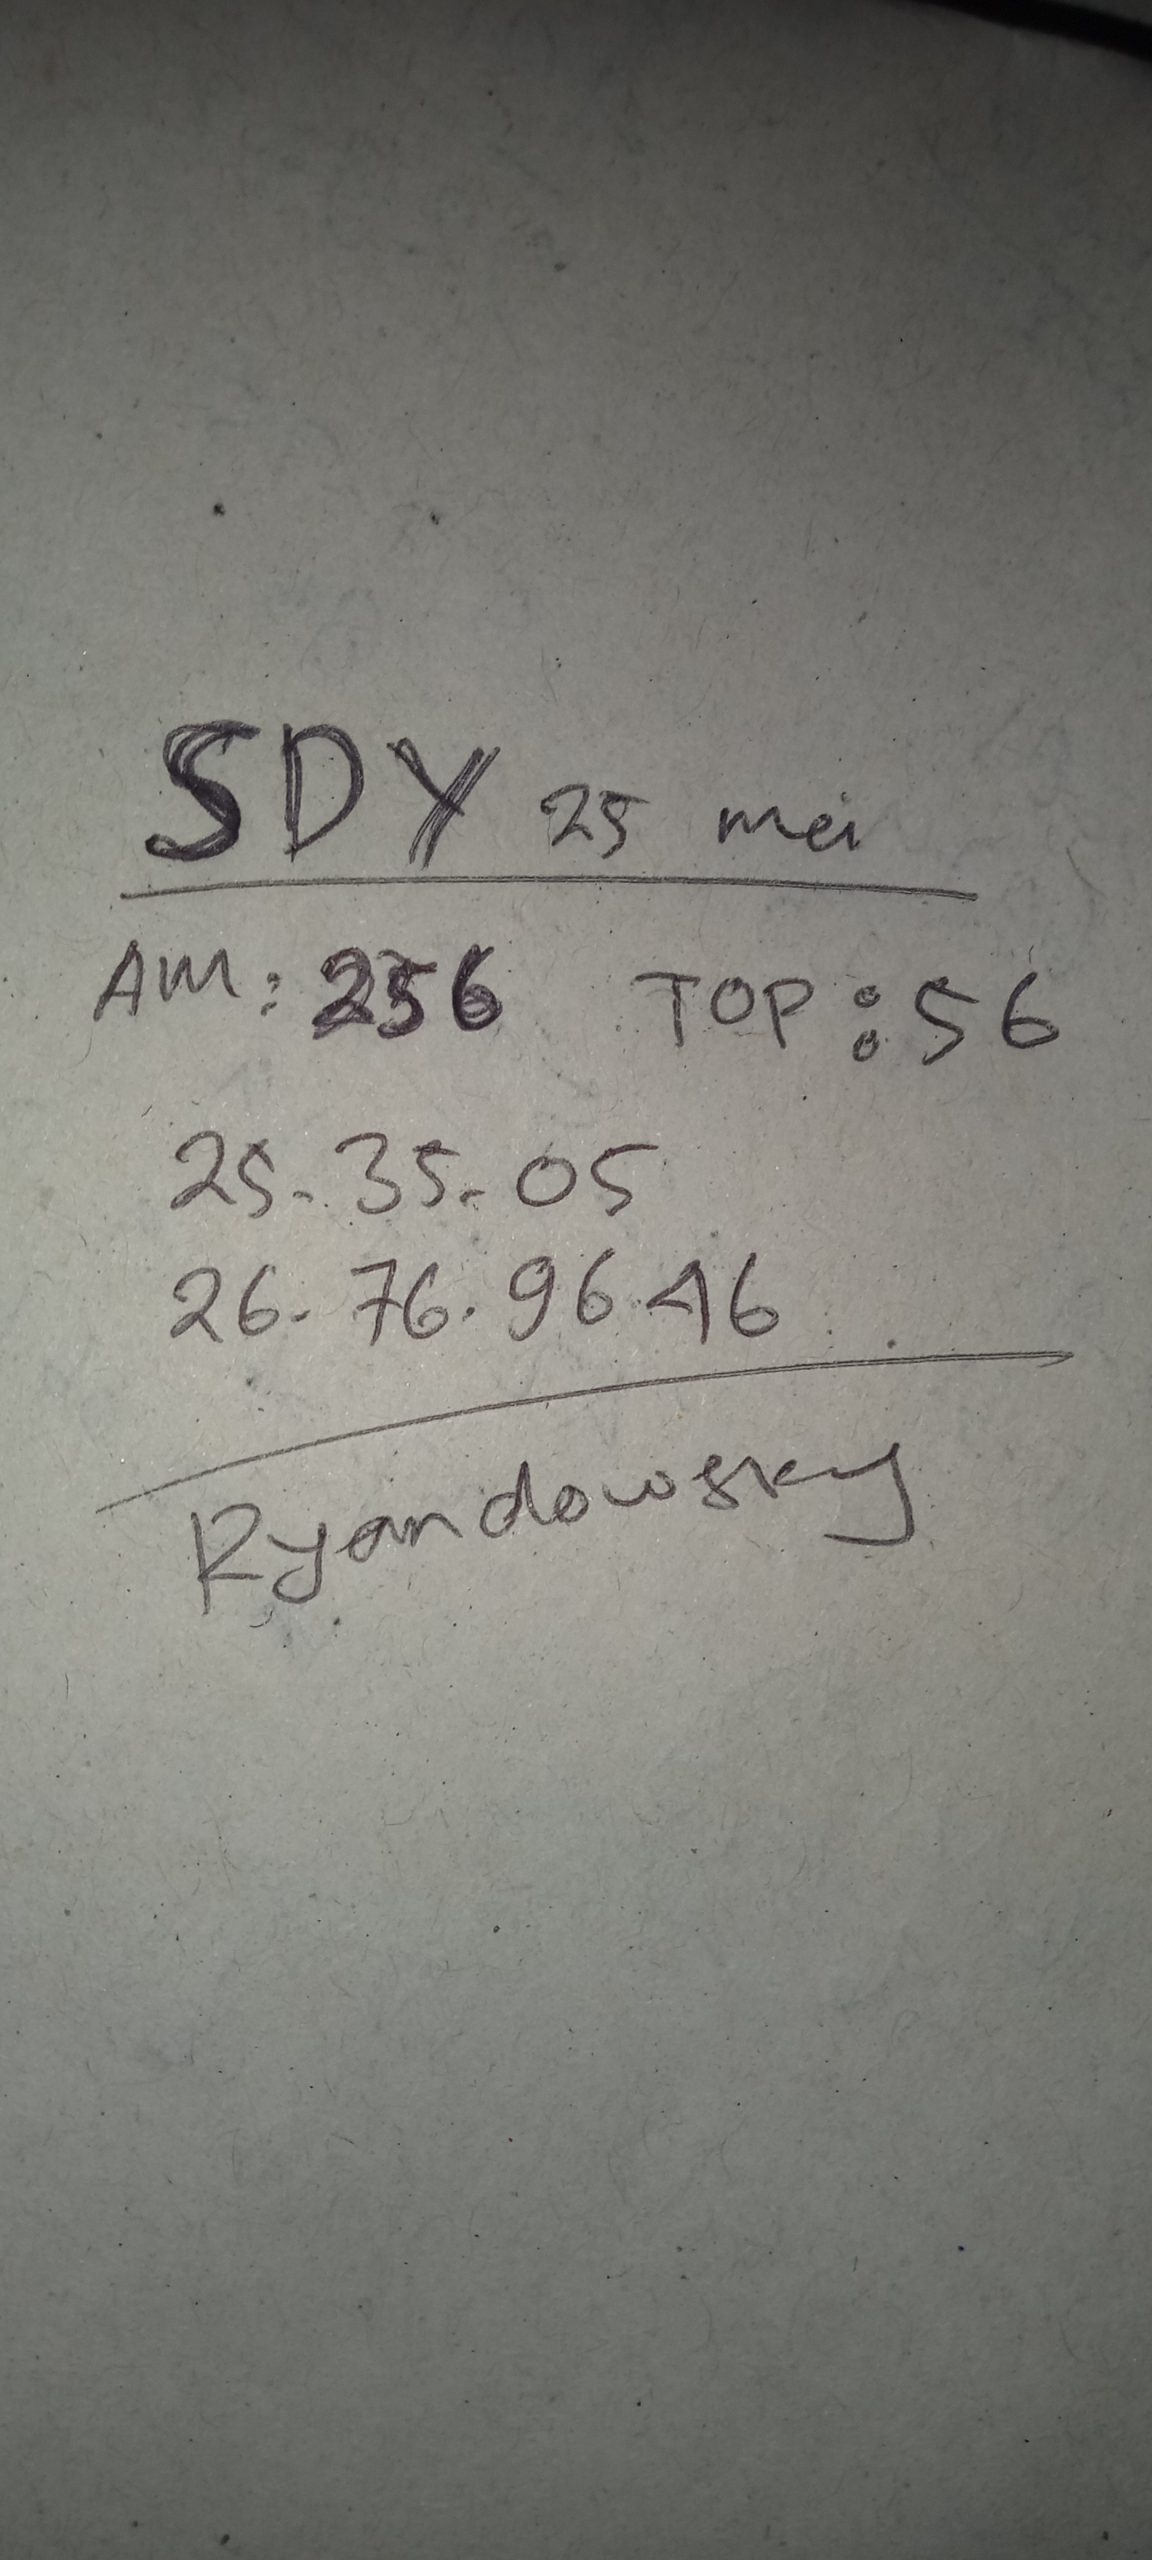 SDY 25 mei
AM: 256 TOP: 56
25. 35. 05
26. 76. 96 46
Ryandowsky